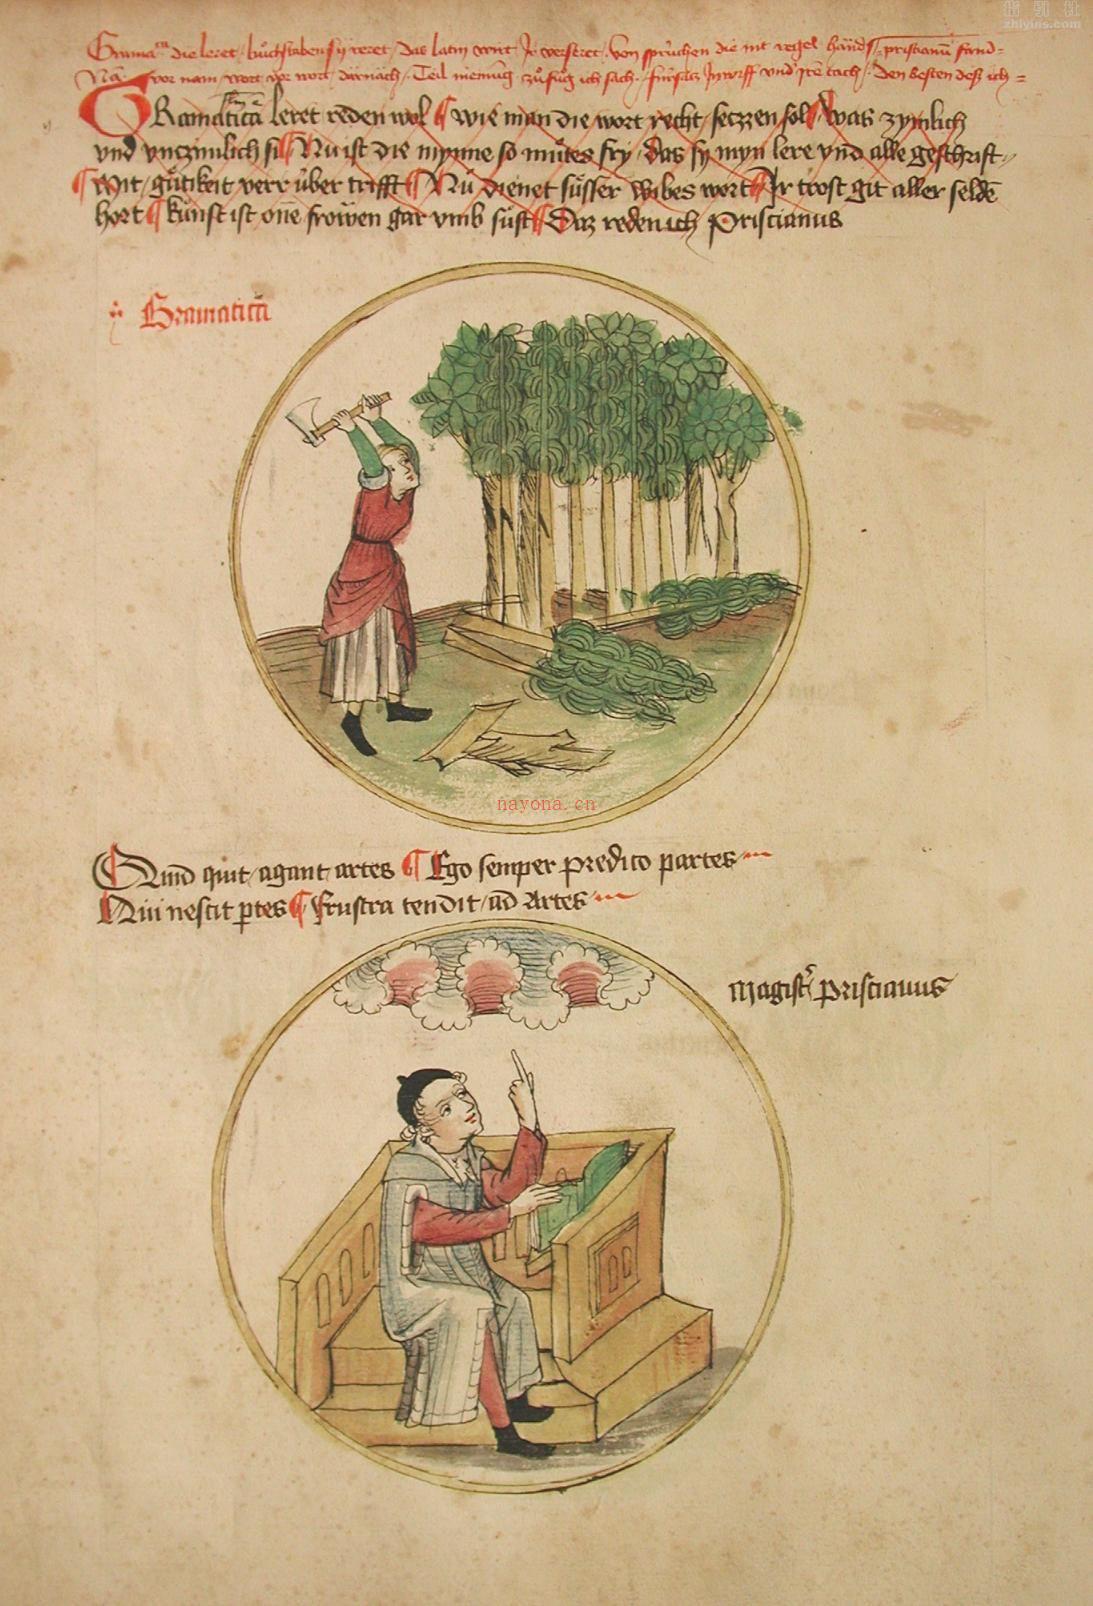 Grama^ca die leret / bůchstaben sy reret / Das latin wirt Jr verseret / von sprúchen die mit regel hånds = pristianū fund =
Nā vor nam / wort vor wort / darnach / Teil niemūg zů fůg ich sach / fúrsatz Inworff vnd
GRamaticā leret reden wol ¶ wie man die wort recht / seczzen sol ¶ Was zymlich
vnd vnczimlich si ¶ Nu ist die mynne so můtes fry / das sy myn lere vnd alle geschrift
¶ Mit / gůtikeit verr úber trifft ¶ Nů dienet sůsser wibes wort ¶ Ir trost git aller seldē
hort ¶ kunst ist one frowen gar vmb sust ¶ Daz reden ich Priscianus
Gramaticā
Quid quit / agant artes ¶ Ego semper predico partes
Qui nescit ꝑtes ¶ frustra tendit / ad artes
magistᷣ priscianus
nayona.cn
指引社
zhiyins.com